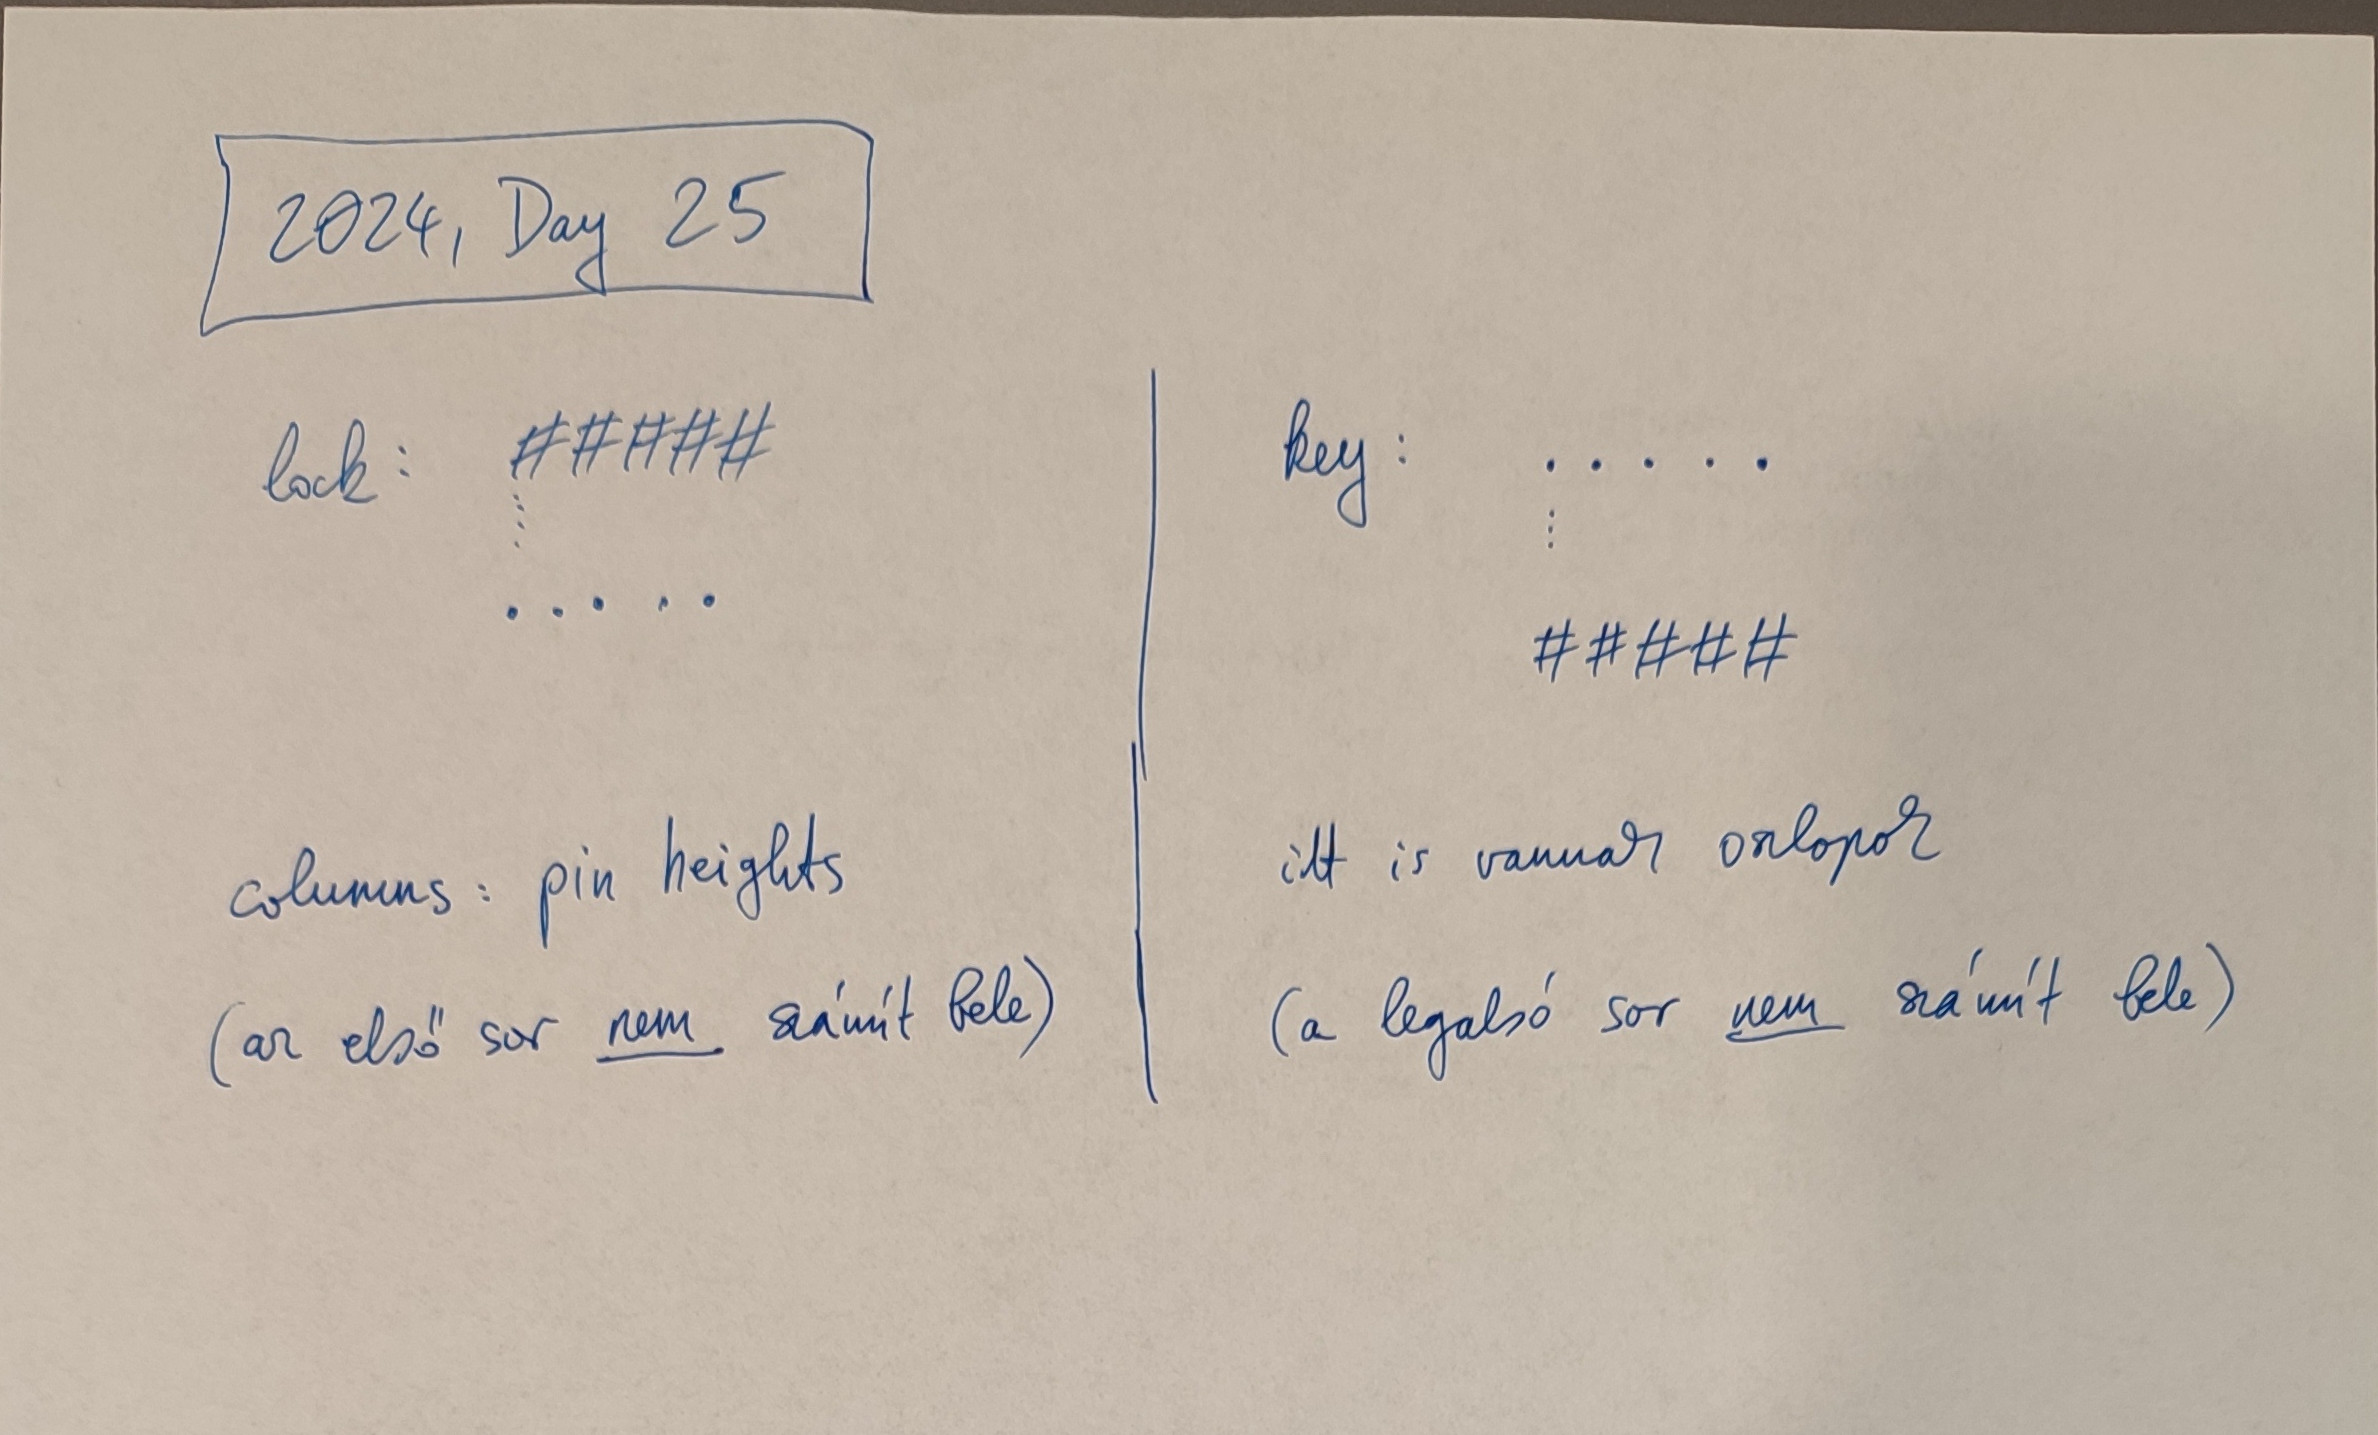 2024, Day 25
lock: #####
⋮
. . . . .
columns: pin heights
(az első sor nem számít bele)
key: . . . . .
⋮
#####
itt is vannak oszlopok
(a legalsó sor nem számít bele)